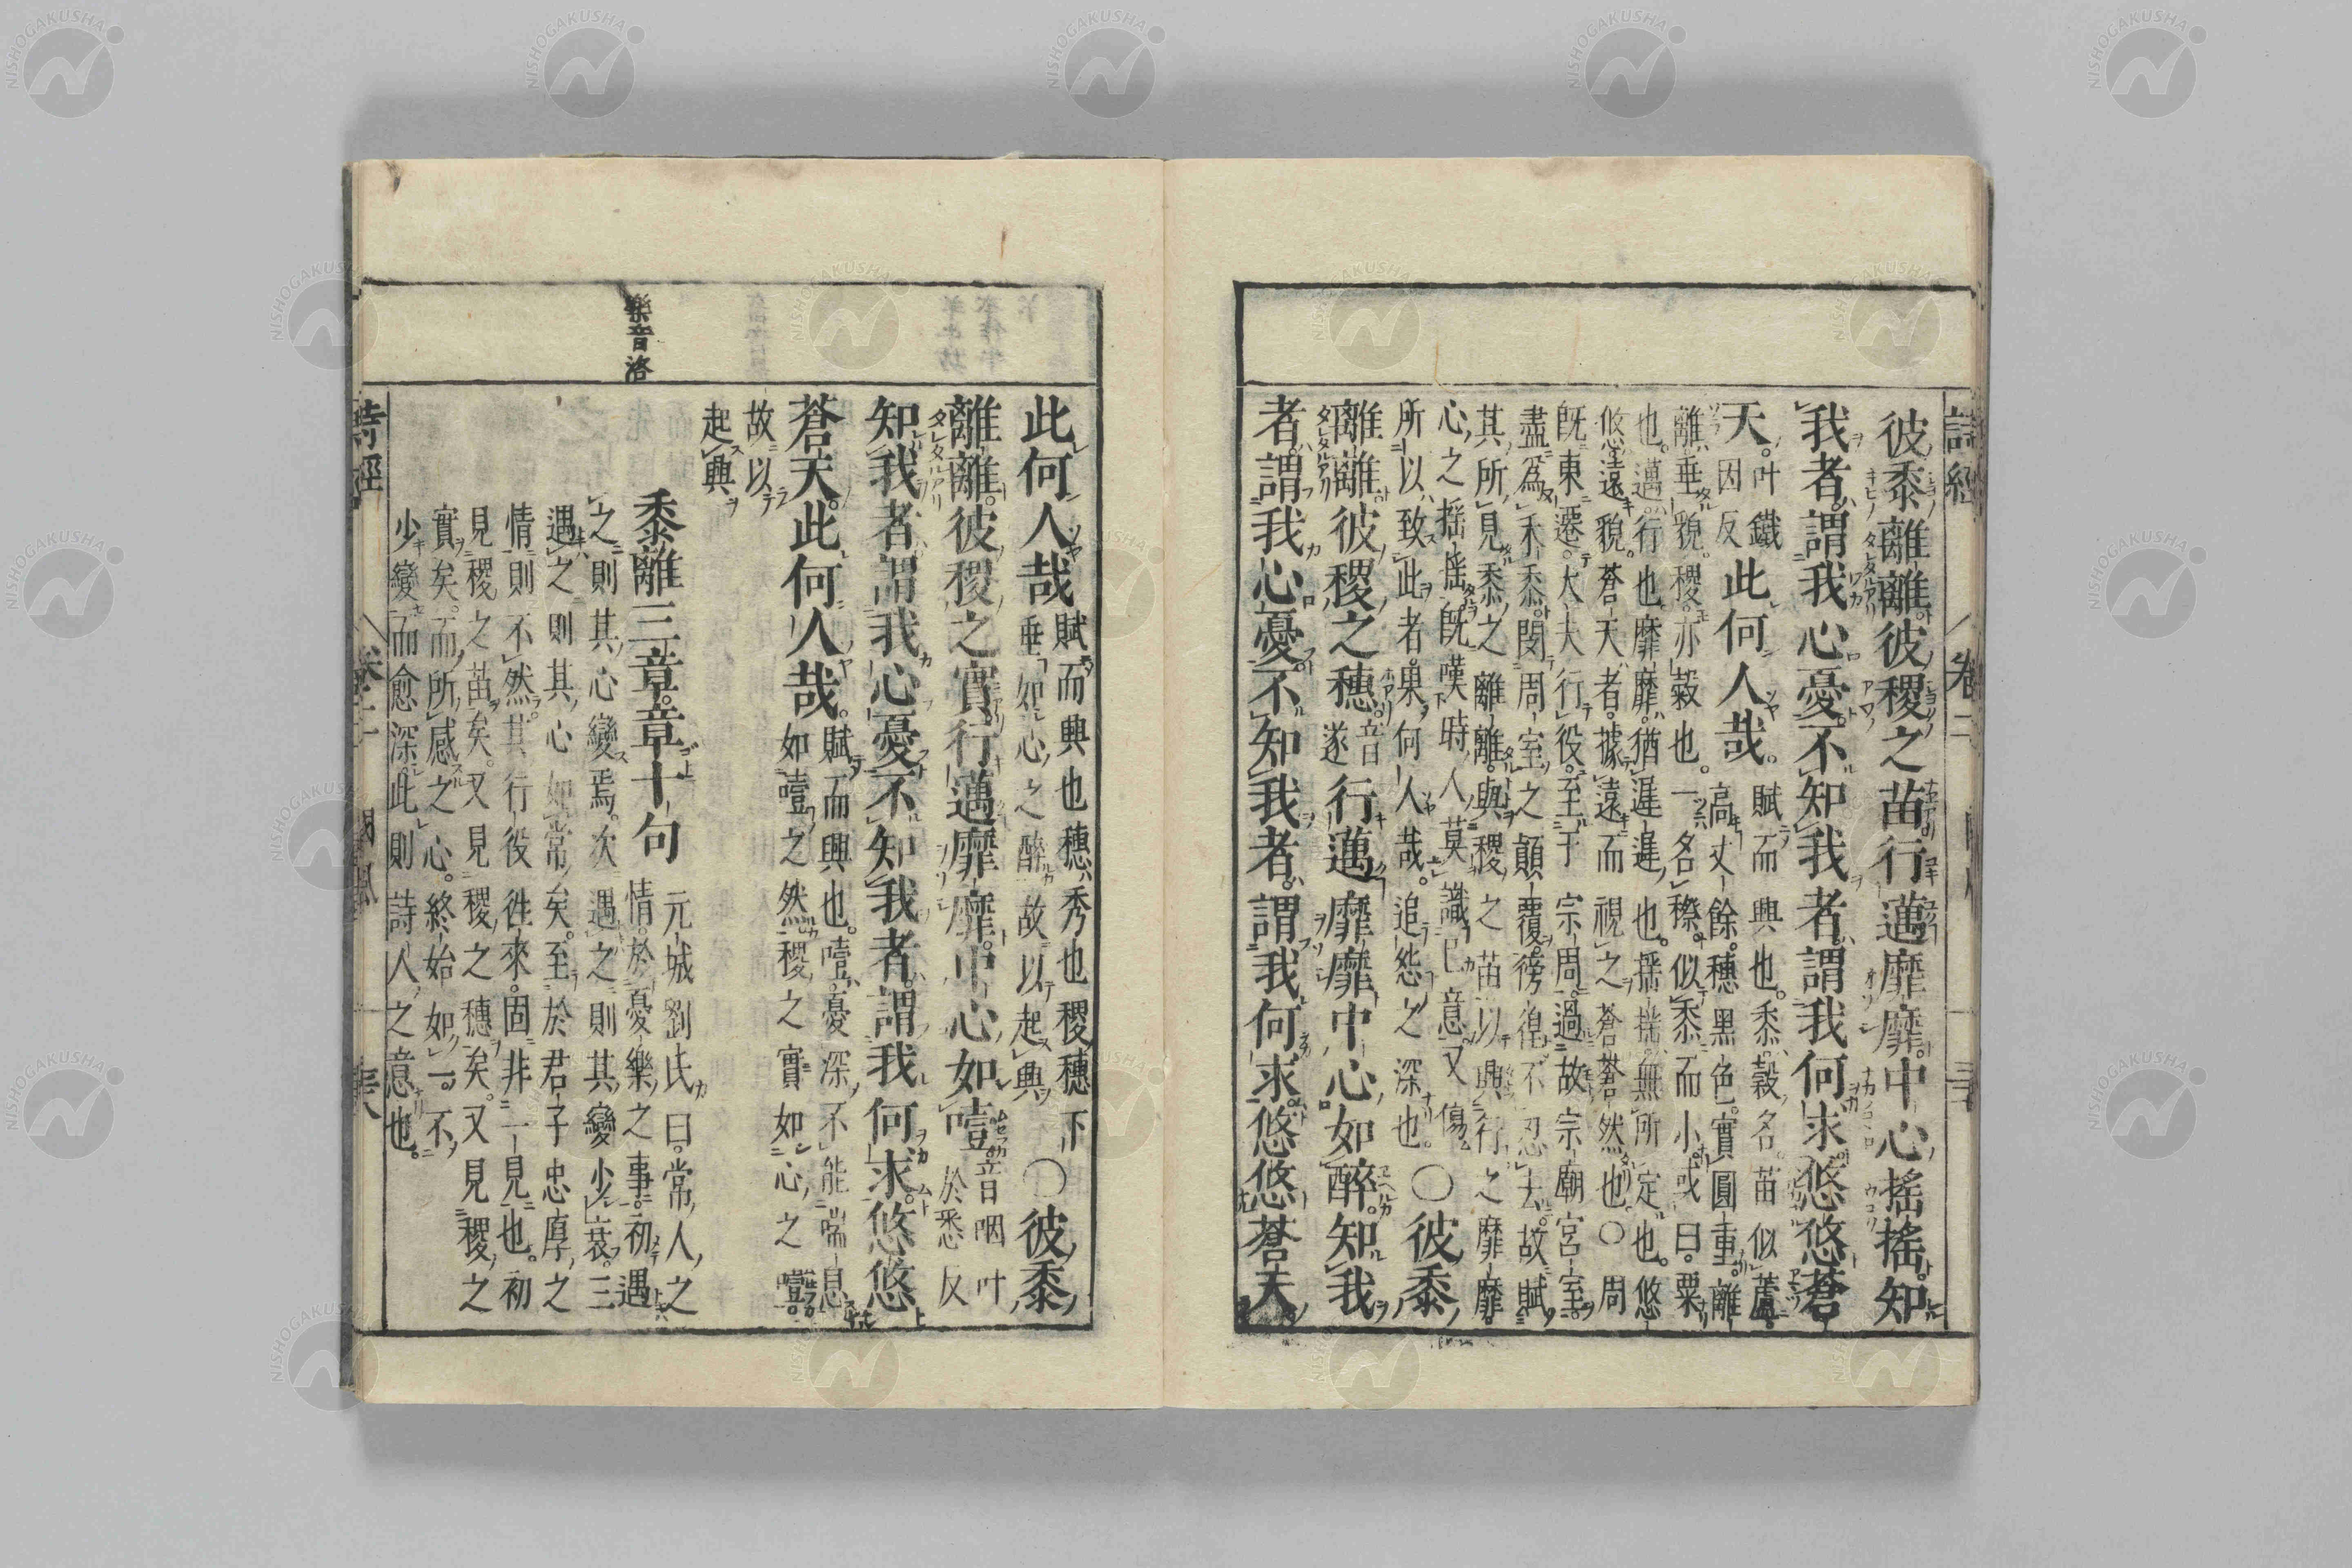 詩經 卷二
彼黍離離。彼稷之苗。行邁靡靡。中心搖搖。知
我者。謂我心憂。不知我者。謂我何求。悠悠蒼
天。叶鐵因反此何人哉。賦而興也。黍。穀名。苗似蘆。高丈餘。穗黑色。實圓重。離
離。垂貌。稷。亦穀也。一名穄。似黍而小。或曰粟
也。邁。行也。靡靡。猶遲遲也。搖搖。無所定也。悠
悠。遠貌。蒼天者。據遠而視之。蒼蒼然也。○周
既東遷。大夫行役。至于宗周。過故宗廟宮室。
盡爲禾黍。閔周室之顛覆。徬徨不忍去。故賦
其所見黍之離離。與稷之苗。以興行之靡靡。
心之搖搖。既嘆時人莫識己意。又傷
所以致此者。果何人哉。追怨之深也。○彼黍
離離。彼稷之穗。音遂行邁靡靡。中心如醉。知我
者。謂我心憂。不知我者。謂我何求。悠悠蒼天。
此何人哉。賦而興也。穗。秀也。稷穗下垂。如心之醉。故以起興。○彼黍
離離。彼稷之實。行邁靡靡。中心如噎。音咽叶於悉反
知我者。謂我心憂。不知我者。謂我何求。悠悠
蒼天。此何人哉。賦而興也。噎。憂深不能喘息。如噎之然。稷之實。如心之噎。
故以
起興。
樂音洛
黍離三章。章十句 元城劉氏曰。常人之情。於憂樂之事。初遇
之。則其心變焉。次遇之。則其變少衰。三
遇之。則其心如常矣。至於君子忠厚之
情。則不然。其行役往來。固非一見也。初
見稷之苗矣。又見稷之穗矣。又見稷之
實矣。而所感之心。終始如一。不
少變。而愈深。此則詩人之意也。
詩經 卷二